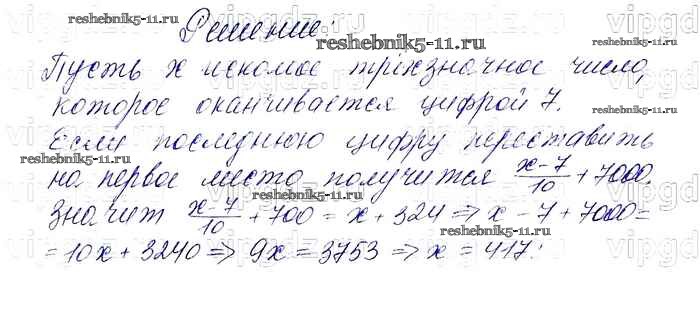 Решение:
reshebnik5-11.ru
reshebnik5-11.ru
reshebnik5-11.ru
Пусть x искомое трёхзначное число,
которое оканчивается цифрой 7.
reshebnik5-11.ru
Если последнюю цифру переставить
reshebnik5-11.ru
на первое место получится (x-7)/10 + 7000.
reshebnik5-11.ru
Значит (x-7)/10 + 700 = x + 324 ⇒ x - 7 + 7000 =
reshebnik5-11.ru
= 10x + 3240 ⇒ 9x = 3753 ⇒ x = 417.